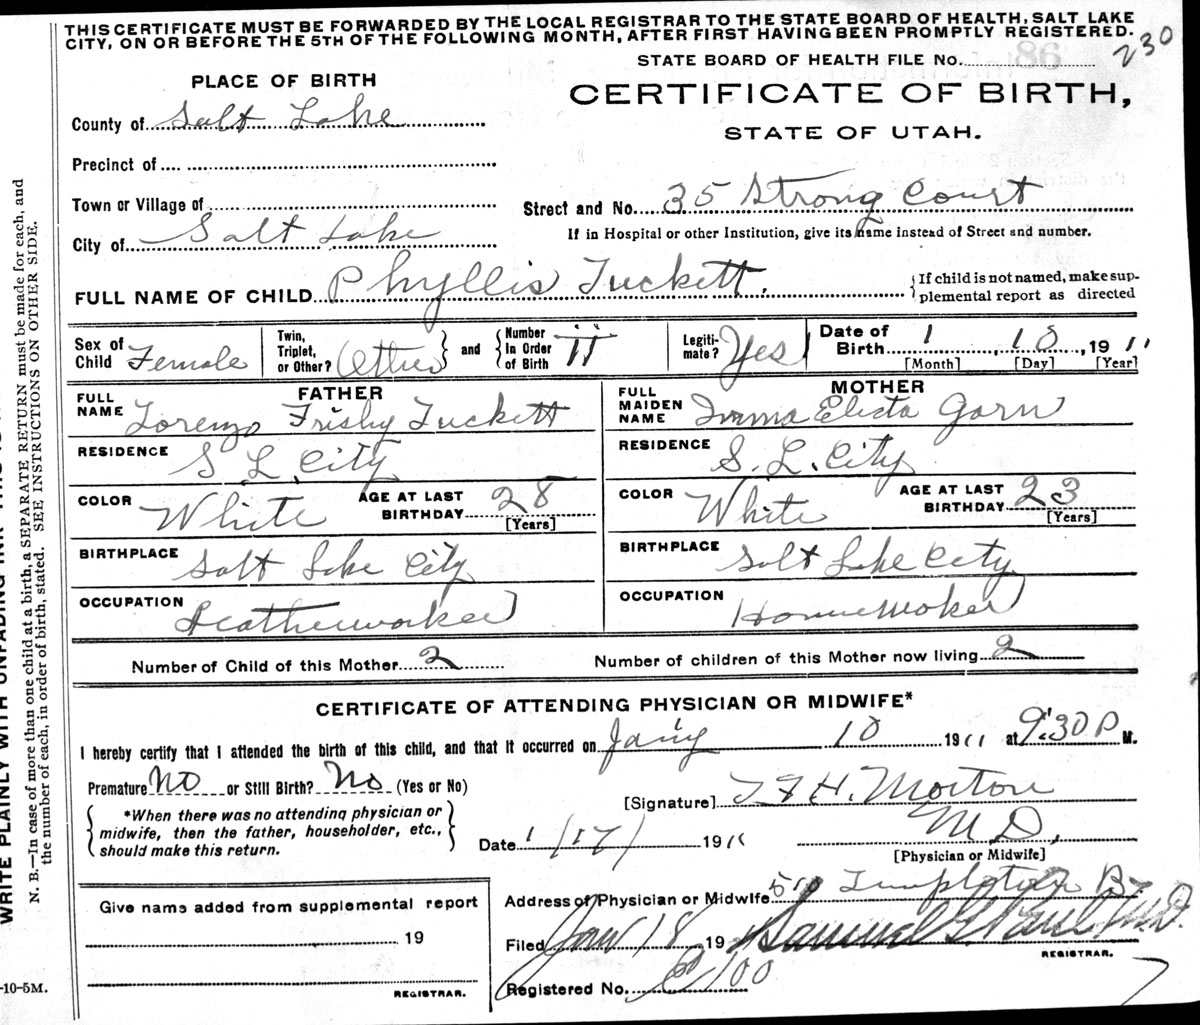 THIS CERTIFICATE MUST BE FORWARDED BY THE LOCAL REGISTRAR TO THE STATE BOARD OF HEALTH, SALT LAKE
CITY, ON OR BEFORE THE 5TH OF THE FOLLOWING MONTH, AFTER FIRST HAVING BEEN PROMPTLY REGISTERED.
STATE BOARD OF HEALTH FILE No. 230
PLACE OF BIRTH
CERTIFICATE OF BIRTH,
STATE OF UTAH.
County of Salt Lake
Precinct of
Town or Village of
Street and No. 35 Strong Court
City of Salt Lake
If in Hospital or other Institution, give its name instead of Street and number.
FULL NAME OF CHILD Phyllis Tuckett.
If child is not named, make sup-
plemental report as directed
Sex of Child Female
Twin, Triplet, or Other? Other and Number In Order of Birth II
Legiti-mate? Yes
Date of Birth 1, 10, 1911
[Month] [Day] [Year]
FATHER
FULL NAME Lorenzo Frisby Tuckett
RESIDENCE S. L. City
COLOR White AGE AT LAST BIRTHDAY 28 [Years]
BIRTHPLACE Salt Lake City
OCCUPATION Leatherworker
MOTHER
FULL MAIDEN NAME Imma Electa Garn
RESIDENCE S. L. City
COLOR White AGE AT LAST BIRTHDAY 23 [Years]
BIRTHPLACE Salt Lake City
OCCUPATION Homemaker
Number of Child of this Mother 2
Number of children of this Mother now living 2
CERTIFICATE OF ATTENDING PHYSICIAN OR MIDWIFE*
I hereby certify that I attended the birth of this child, and that it occurred on 10 1911 at 9:30 P M.
Premature No or Still Birth? No (Yes or No)
*When there was no attending physician or
midwife, then the father, householder, etc.,
should make this return.
[Signature] H. Morton
M D,
[Physician or Midwife]
Date 1/17/ 1911
Address of Physician or Midwife Templeton
Give name added from supplemental report
19
REGISTRAR.
Filed Jan 18 19 Samuel G. Paul, M.D.
REGISTRAR.
Registered No. 100
WRITE PLAINLY WITH UNFADING INK
N. B.—In case of more than one child at a birth, a SEPARATE RETURN must be made for each, and
the number of each, in order of birth, stated. SEE INSTRUCTIONS ON OTHER SIDE.
-10-5M.